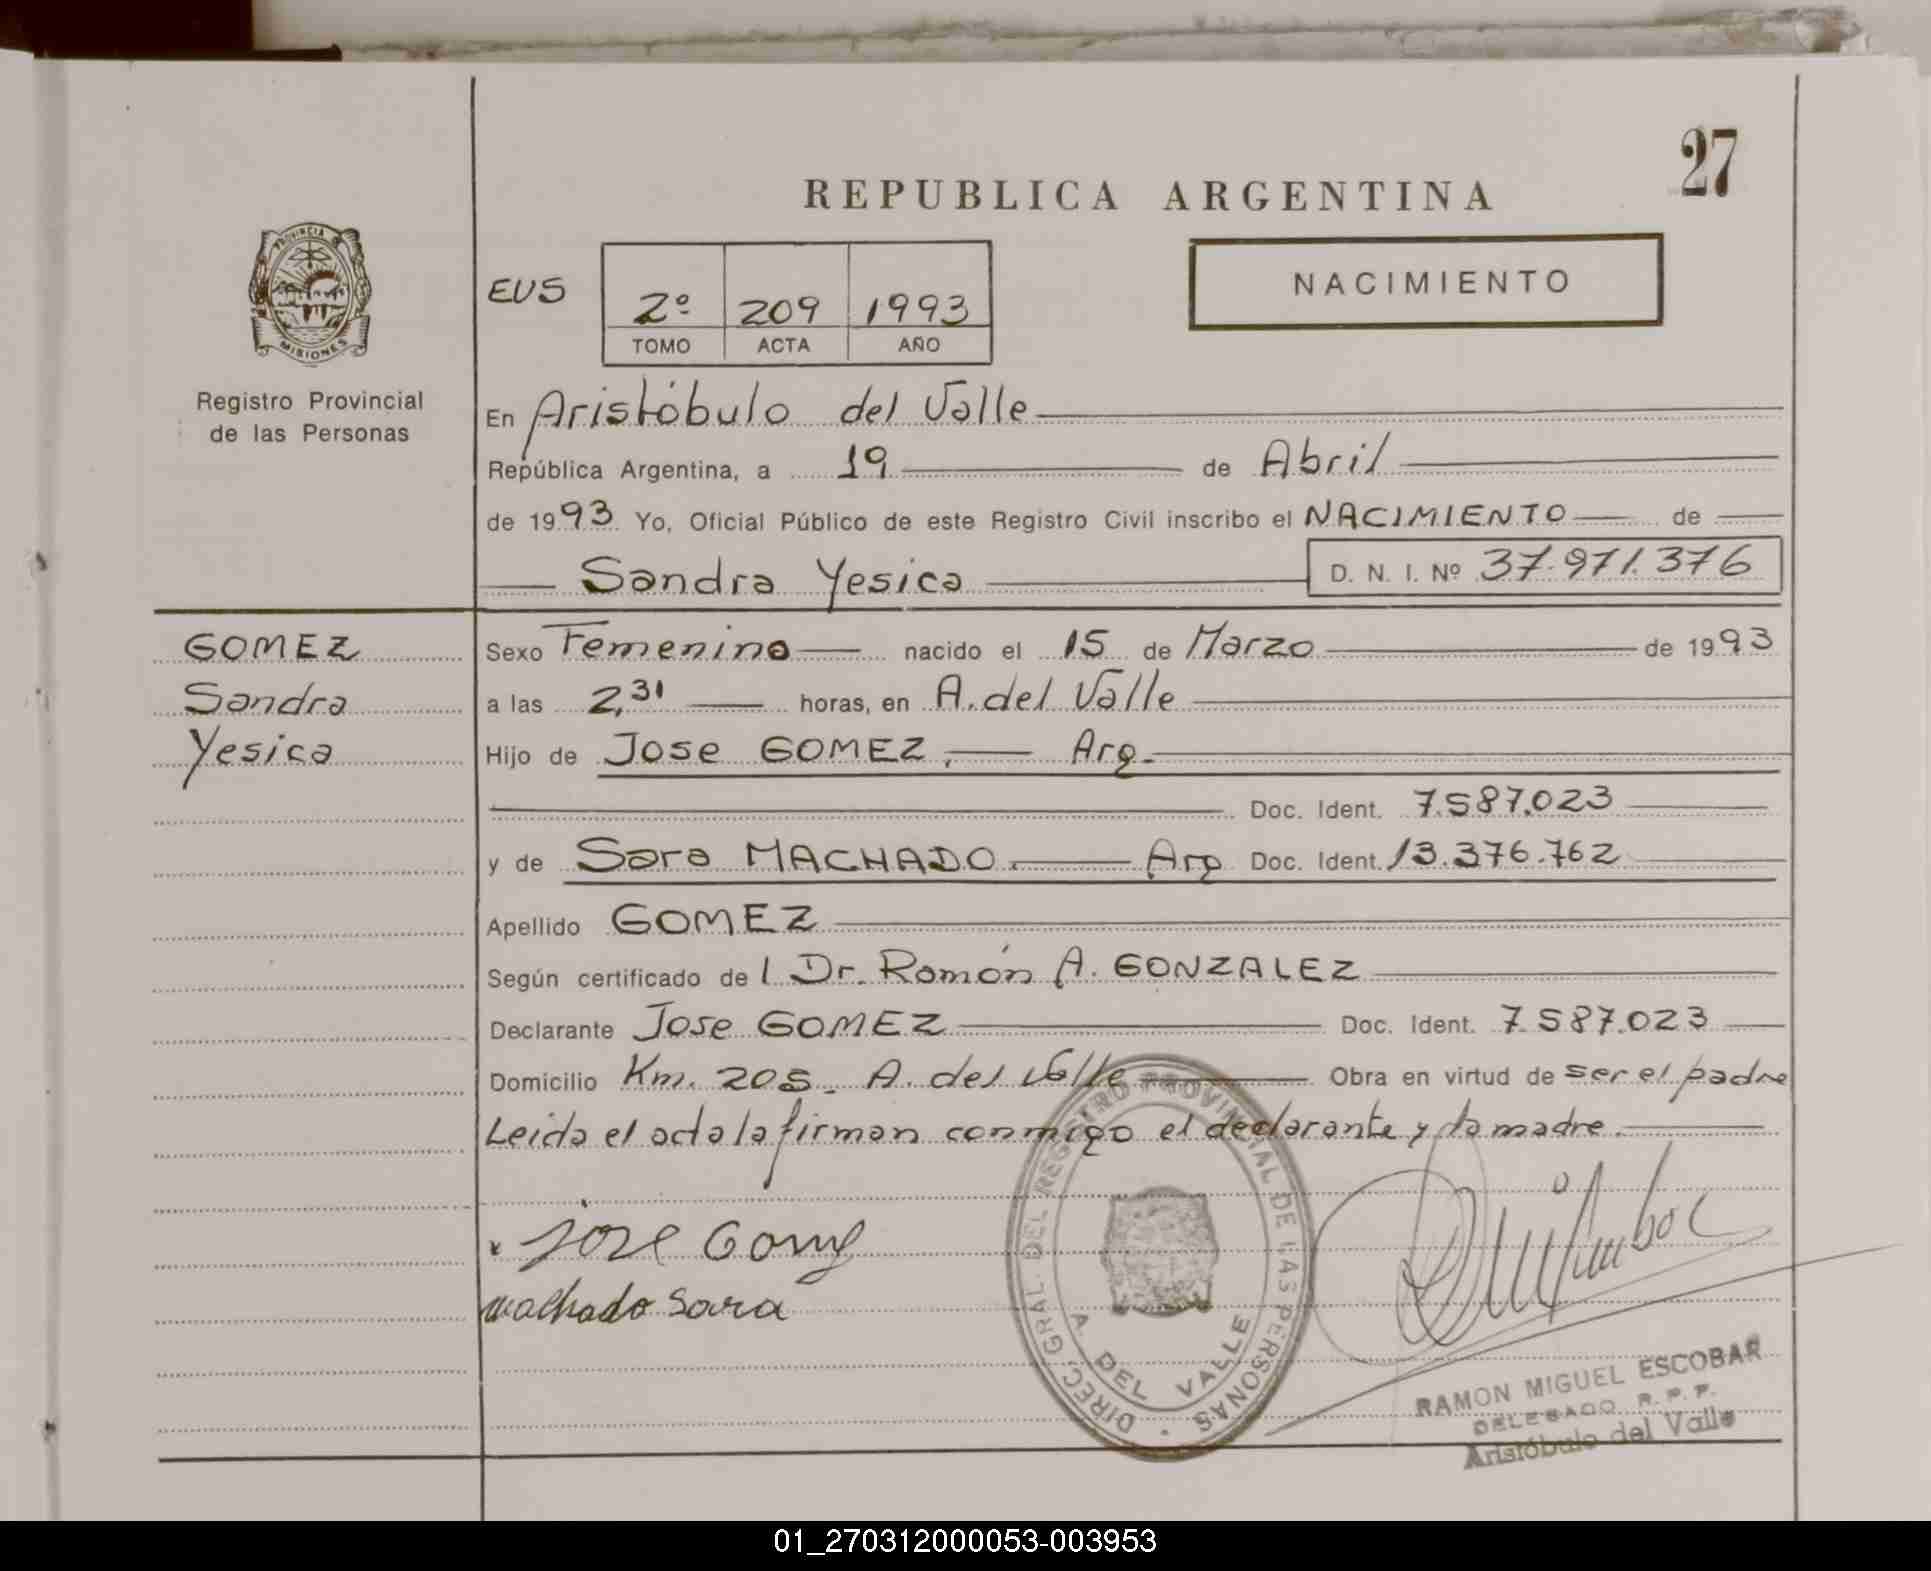 27
REPUBLICA ARGENTINA
PROVINCIA DE
MISIONES
Registro Provincial
de las Personas
EUS
2º 209 1993
TOMO ACTA AÑO
NACIMIENTO
En Aristóbulo del Valle
República Argentina, a 19 de Abril
de 1993 Yo, Oficial Público de este Registro Civil inscribo el NACIMIENTO de
Sandra Yesica D. N. I. Nº 37.971.376
GOMEZ
Sandra
Yesica
Sexo Femenino nacido el 15 de Marzo de 1993
a las 2,31 horas, en A. del Valle
Hijo de Jose GOMEZ, Arg.
Doc. Ident. 7.587.023
y de Sara MACHADO. Arg Doc. Ident. 13.376.762
Apellido GOMEZ
Según certificado de l Dr. Ramón A. GONZALEZ
Declarante Jose GOMEZ Doc. Ident. 7.587.023
Domicilio Km. 205. A. del Valle Obra en virtud de ser el padre
Leida el acta la firman conmigo el declarante y la madre.
Jose Gomez
Machado Sara
DIREC. GRAL. DEL REGISTRO PROVINCIAL DE LAS PERSONAS
A. DEL VALLE
RAMON MIGUEL ESCOBAR
DELEGADO R. P. P.
Aristóbulo del Valle
01_270312000053-003953